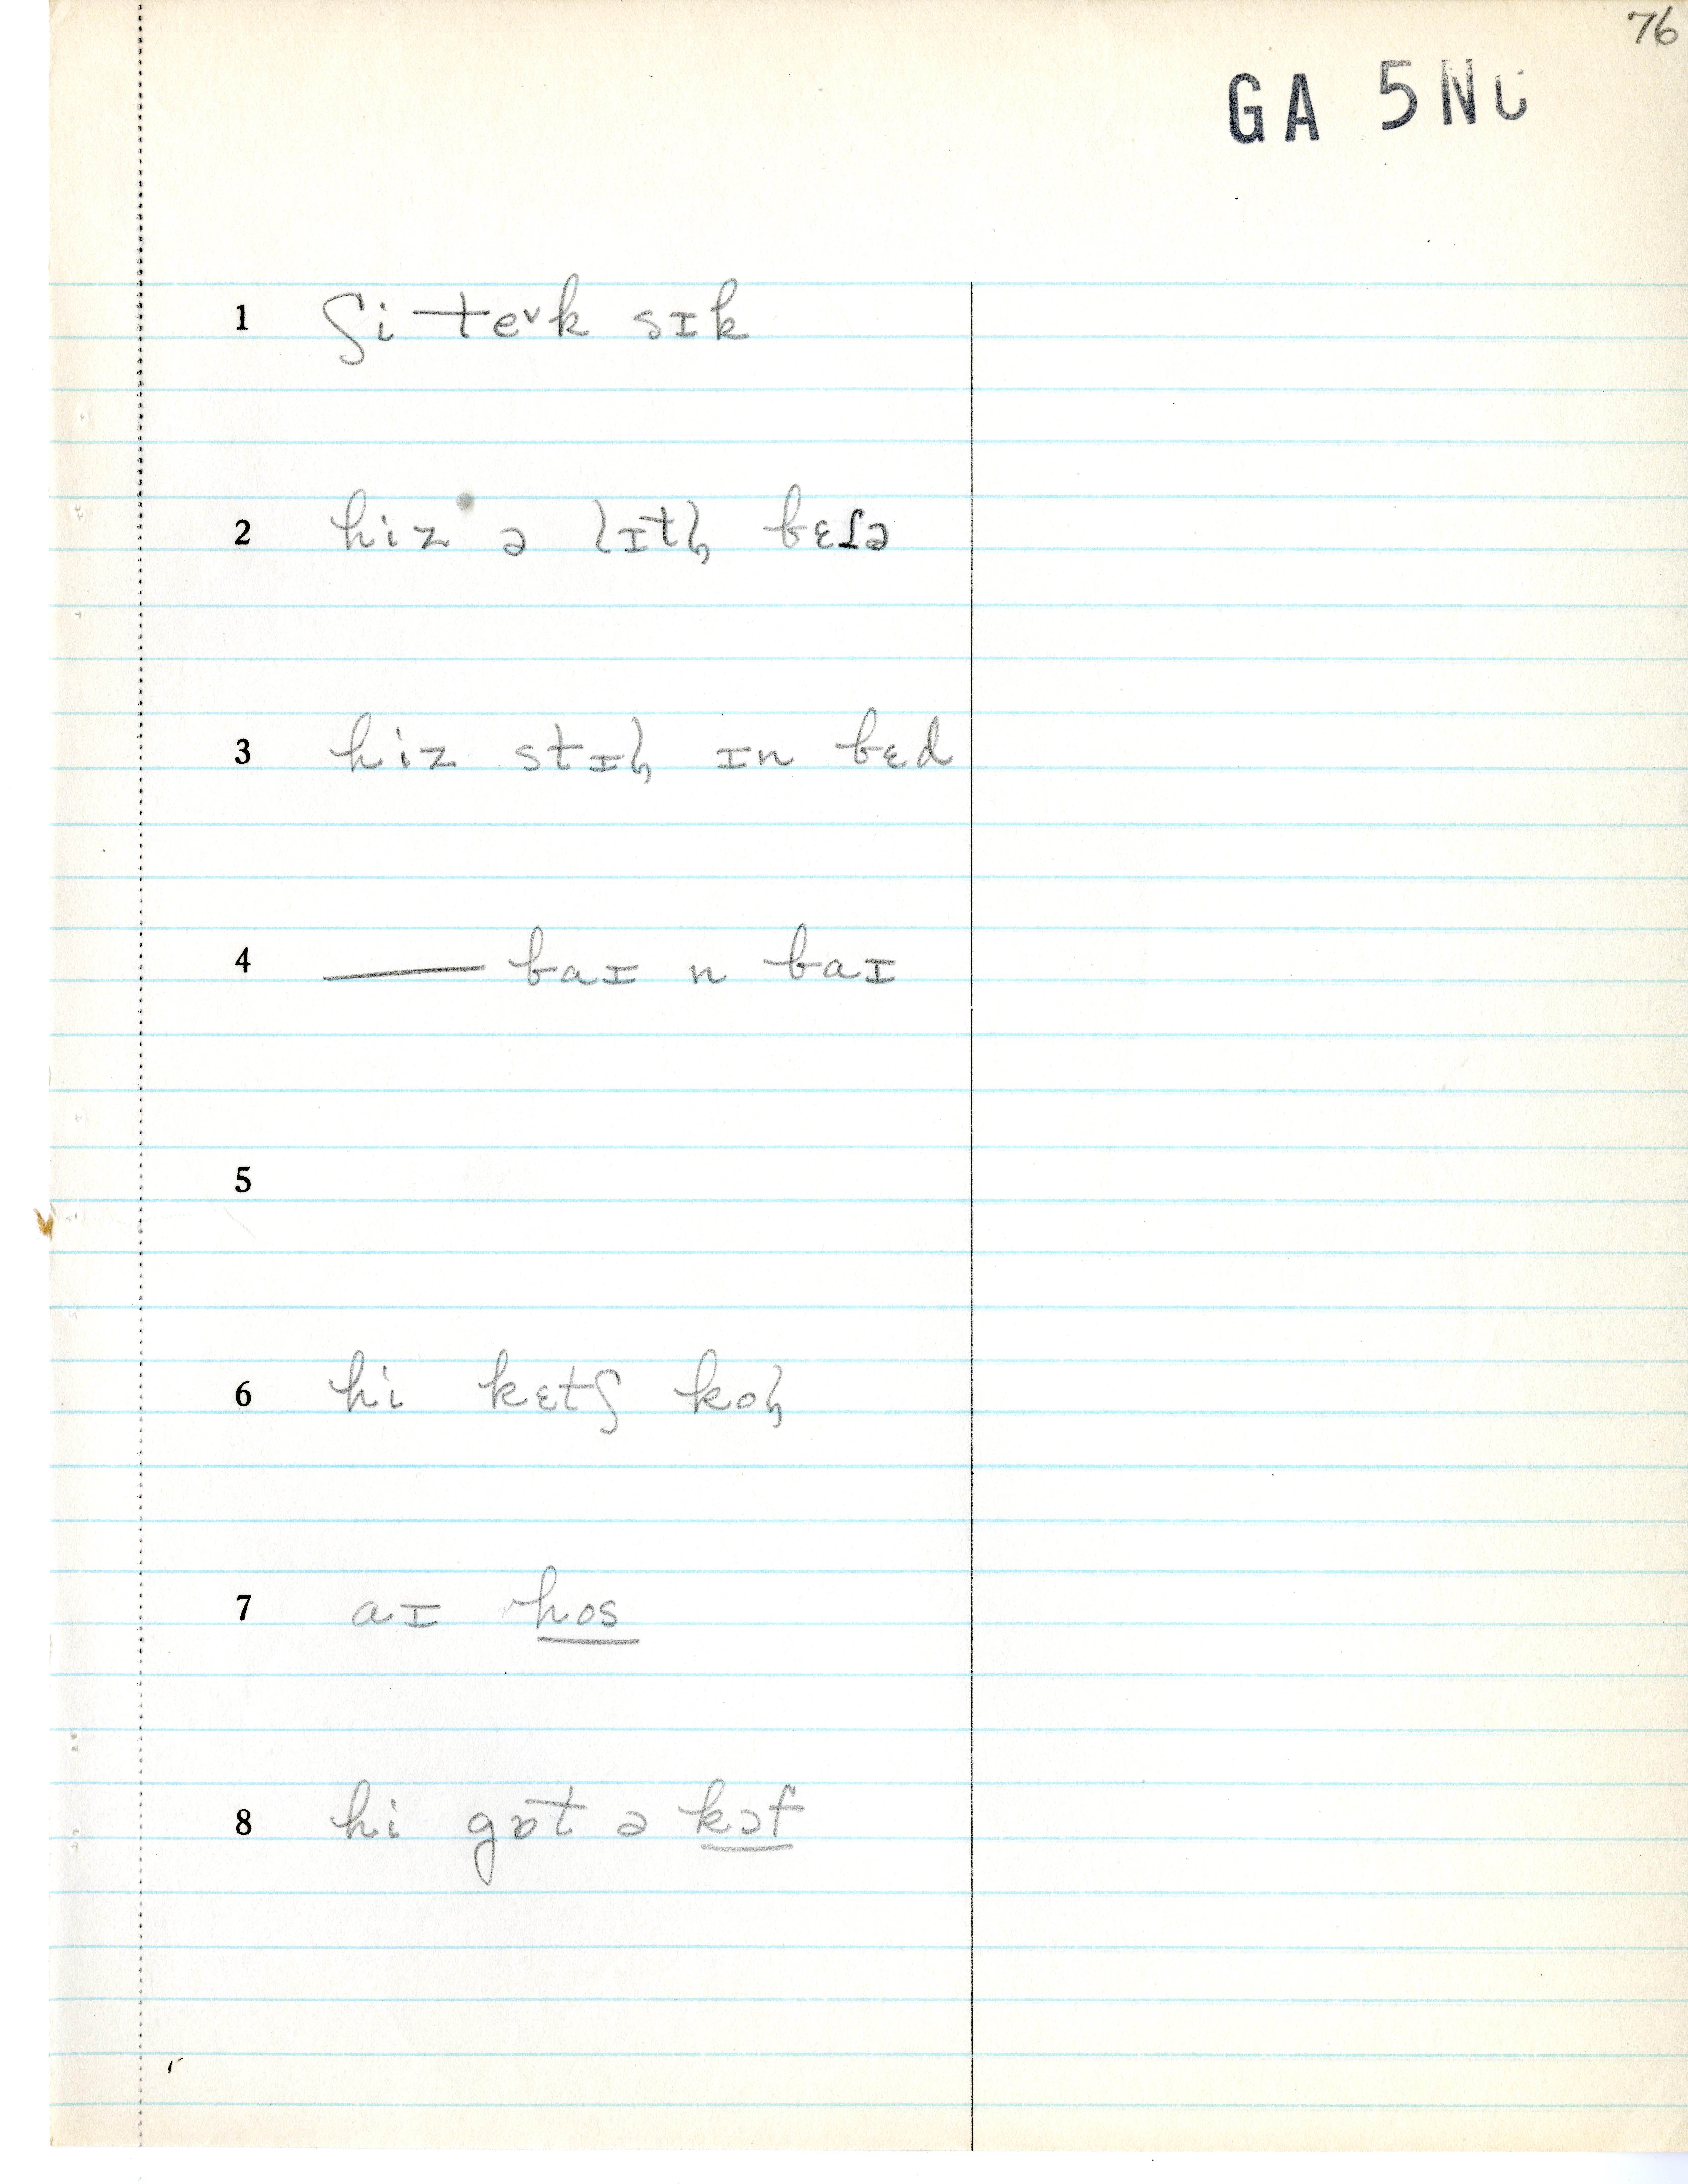 76
GA 5N
1 ʃi te˅k sɪk
2 hiz ə lɪtɫ̩ bɛʆə
3 hiz stɪɫ ɪn bɛd
4 —— baɪ n baɪ
5
6 hi kɛtʃ koɫ
7 aɪ hos
8 hi gɒt ə kɔf